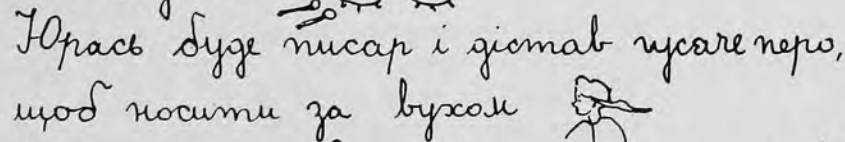 Юрась буде писар і дістав гусаче перо,
щоб носити за вухом